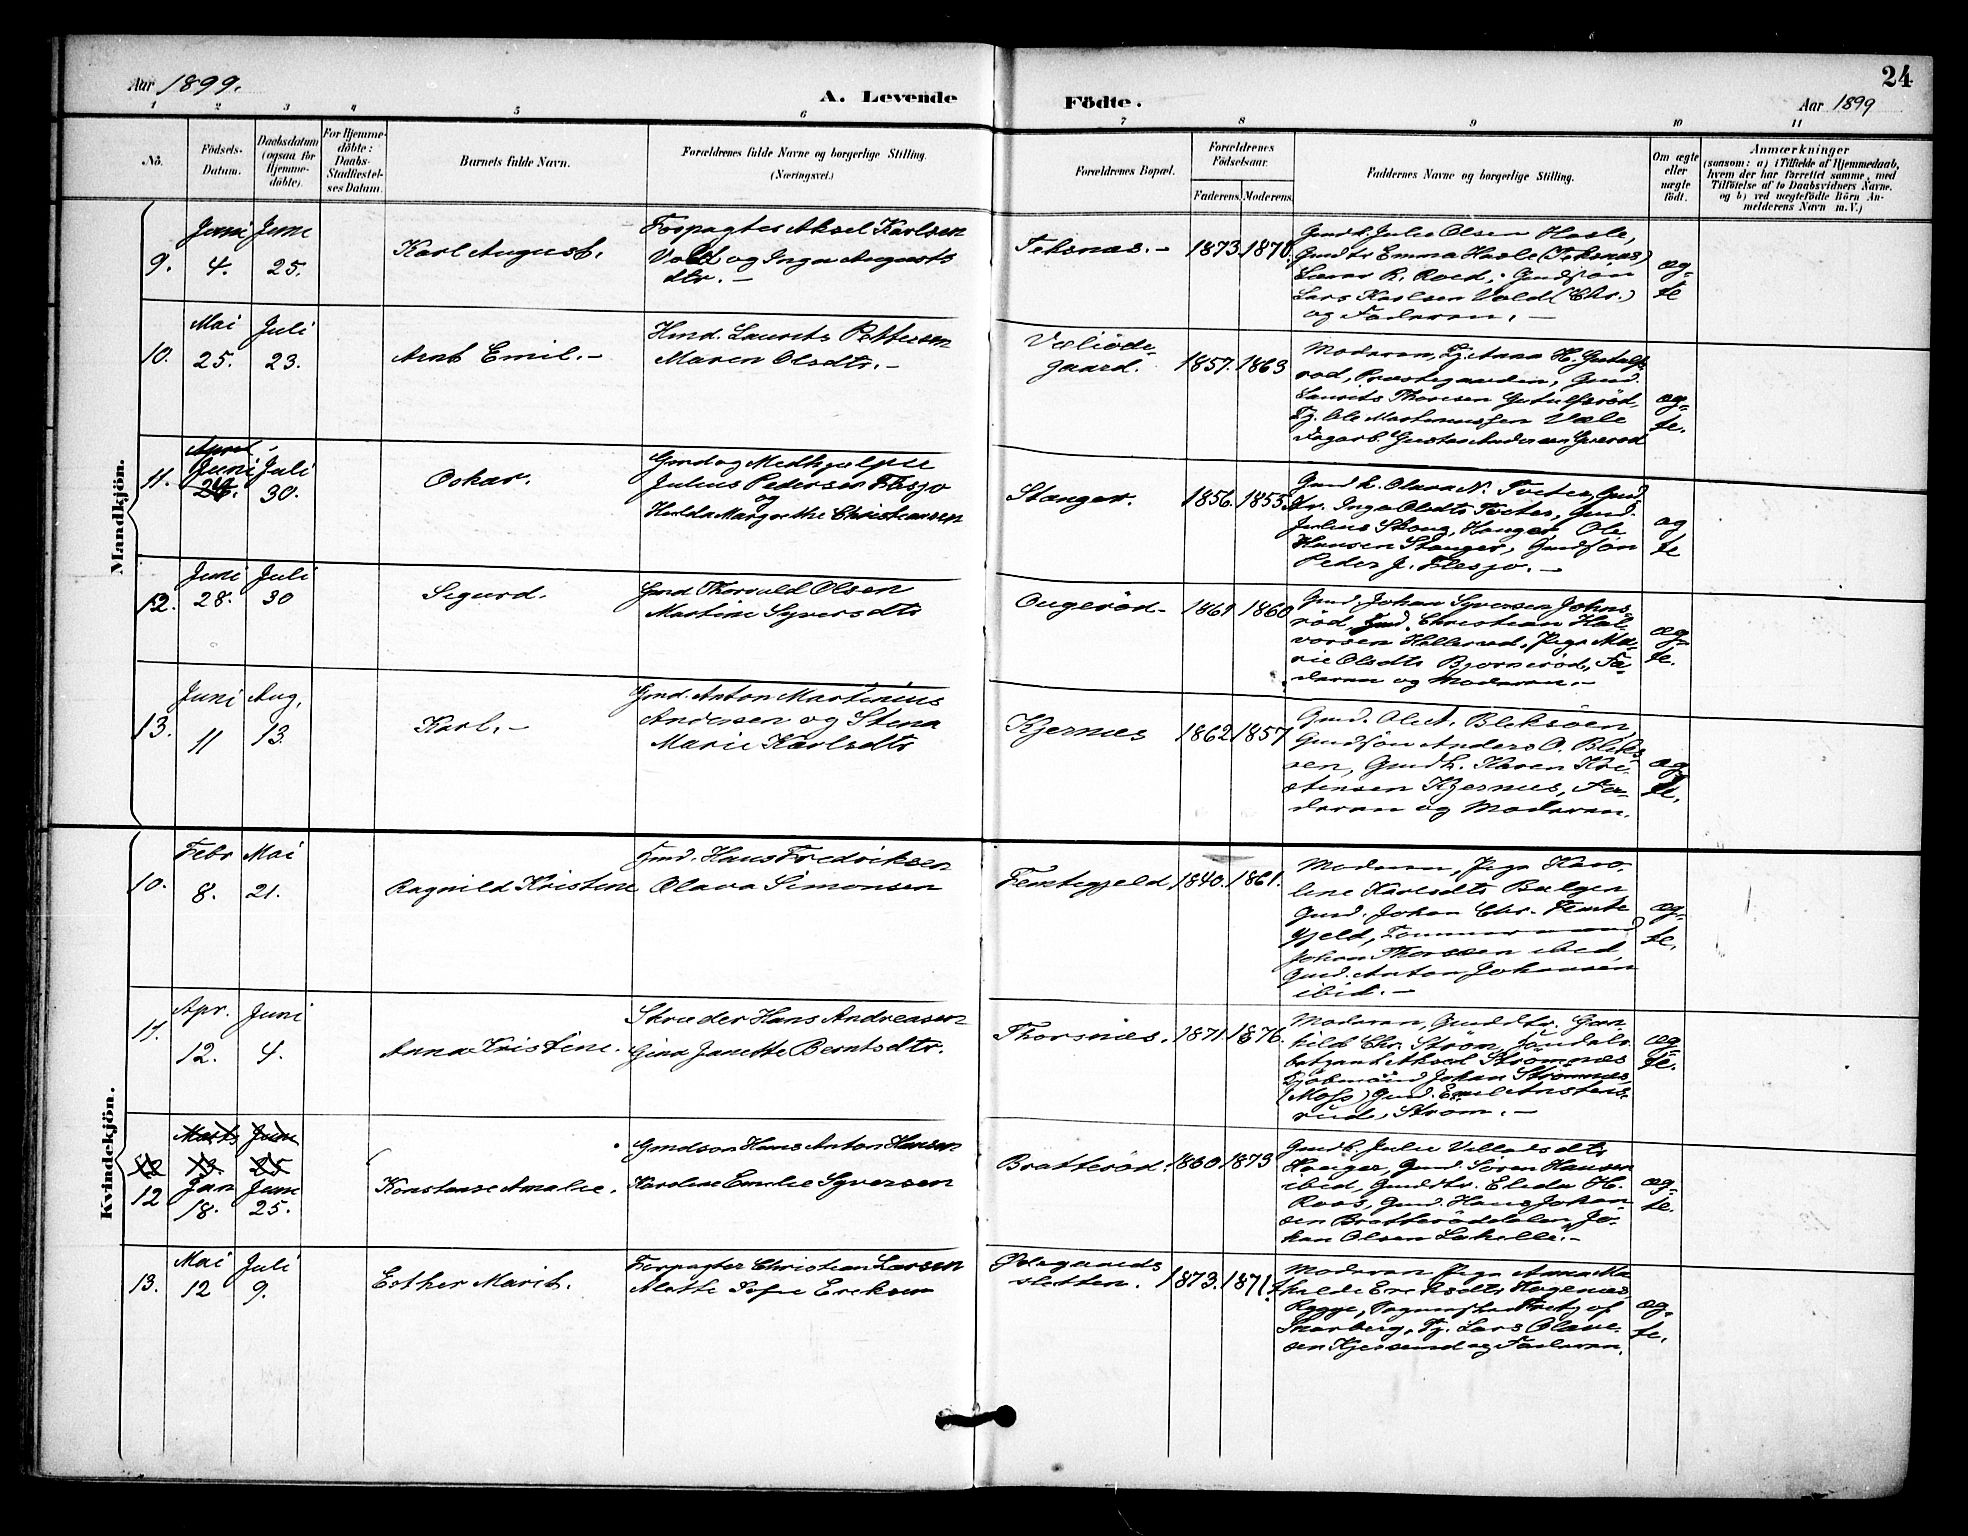 24
Aar 1899.
A. Levende
Födte.
Aar 1899
1 2 3 4 5 6 7 8 9 10 11
No.
Födsels-
Datum.
Daabsdatum
(ogsaa for
Hjemme-
döbte).
For Hjemme-
döbte:
Daabs-
Stadfæstel-
ses Datum.
Barnets fulde Navn.
Forældrenes fulde Navne og borgerlige Stilling.
(Næringsvei.)
Forældrenes Bopæl.
Forældrenes
Födselsaar.
Faderens. Moderens.
Faddernes Navne og borgerlige Stilling.
Om ægte
eller
uægte
födt.
Anmærkninger
(saasom: a) i Tilfælde af Hjemmedaab,
hvem der har forrettet samme, med
Tilföielse af to Daabsvidners Navne.
og b) ved uægtefödte Börn An-
melderens Navn m. V.)
Mandkjön.
9.
Juni
4.
Juni
25.
Karl August.
Forpagter Aksel Karlsen
Vold og Inga Augusts
dtr. —
Teksnæs. —
1873. 1870.
Gmdk. Julie Olsen Hasle,
Gmdtr Emma Hasle (Teksnæs)
Lars R. Roed, Gmdsøn
Lars Karlsen Vold (Chr.)
og Faderen. —
æg-
te
10.
Mai
25.
Juli
23.
Arnt Emil. —
Hmd. Laurits Pettersen
Maren Olsdtr. —
Væliöde-
gaard.
1857. 1863
Moderen, Tj. Anna H. Gutulfs-
rød, Præstegaarden, Gmd.
Laurits Thoresen Gutulfsröd,
Tj. Ole Martinussen Væle
Dagarb. Gustav Andersen
æg-
te.
11.
April
Juni
Juli
30.
Oskar.
Gmd og Medhjælper
Julius Pedersen Flesjø
og
Hulda Margrethe Christiansen
Stanger.
1856. 1855.
Gmdk. Olava N. Tveter, Gmd
dr. Inga Olsdtr Tveter, Gmd.
Julius Skoug, Hauger, Ole
Hansen Stanger, Gmdsøn
Peder J. Flesjø. —
æg
te
12.
Juni
28.
Juli
30
Sigurd.
Gmd Thorvald Olsen
Martine Syversdtr
Ougeröd —
1861 1860
Gmd Johan Syversen Johns-
röd, Gmd. Christian Hal-
vorsen Hallerud, Pige Ma-
rie Olsdtr Bjørneröd, Fa-
deren og Moderen. —
æg-
te.
13.
Juni
11
Aug.
13.
Karl. —
Gmd. Anton Martinius
Andersen og Stina
Marie Karlsdtr
Kjernes
1862. 1857
Gmd. Ole A. Bleksöen,
Gmdsön Anders O. Bleks-
sen, Gmdk. Karen Kri-
stensen Kjernes, Fa-
deren og Moderen.
æg
te.
Kvindekjön.
10.
Febr
8.
Mai
21.
Ragnild Kristine
Gmd. Hans Fredriksen
Olava Simonsen
Femtegjeld.
1840. 1861.
Moderen, Pige Karo-
line Karlsdtr Bølgen
Gmd. Johan Chr. Femte
gjeld, Tømmermand
Johan Thoresen ibid,
Gmd. Anton Johansen
ibid. —
æg-
te.
11.
Apr.
12.
Juni
4.
Anna Kristine.
Skræder Hans Andreasen
Gina Janette Berntsdtr.
Thorsnæs.
1871. 1876.
Moderen, Gmddtr. Gun
hild Chr. Ström,
Aksel Strømnæs
Johan Strømnæs,
(Moss) Gmd. Emil Anstens-
rud, Strøm. —
æg-
te.
12
Marts
13.
Juni
25
12
Jan
18.
Juni
25.
Konstanse Amalie.
Gmdson Hans Anton Hansen
Karoline Emilie Syversen
Bratteröd.
1860. 1873
Gmdk. Julie Villadsdtr
Hauger, Gmd. Sören Hansen
ibid, Gmddtr. Elida H.
Roos, Gmd. Hans Johan
sen Bratteröddalen, Jo-
han Olsen Løkelle. —
æg-
te.
13.
Mai
12
Juli
9.
Esther Marit.
Forpagter Christian Larsen
Mette Sofie Eriksen
Ødegaards
sletten.
1873. 1871.
Moderen Pige Anna Ma
thilde Eriksdtr Hagenæs,
Rygge,
Tj. Lars Olave-
sen Kjessund og Faderen.
æg-
te.